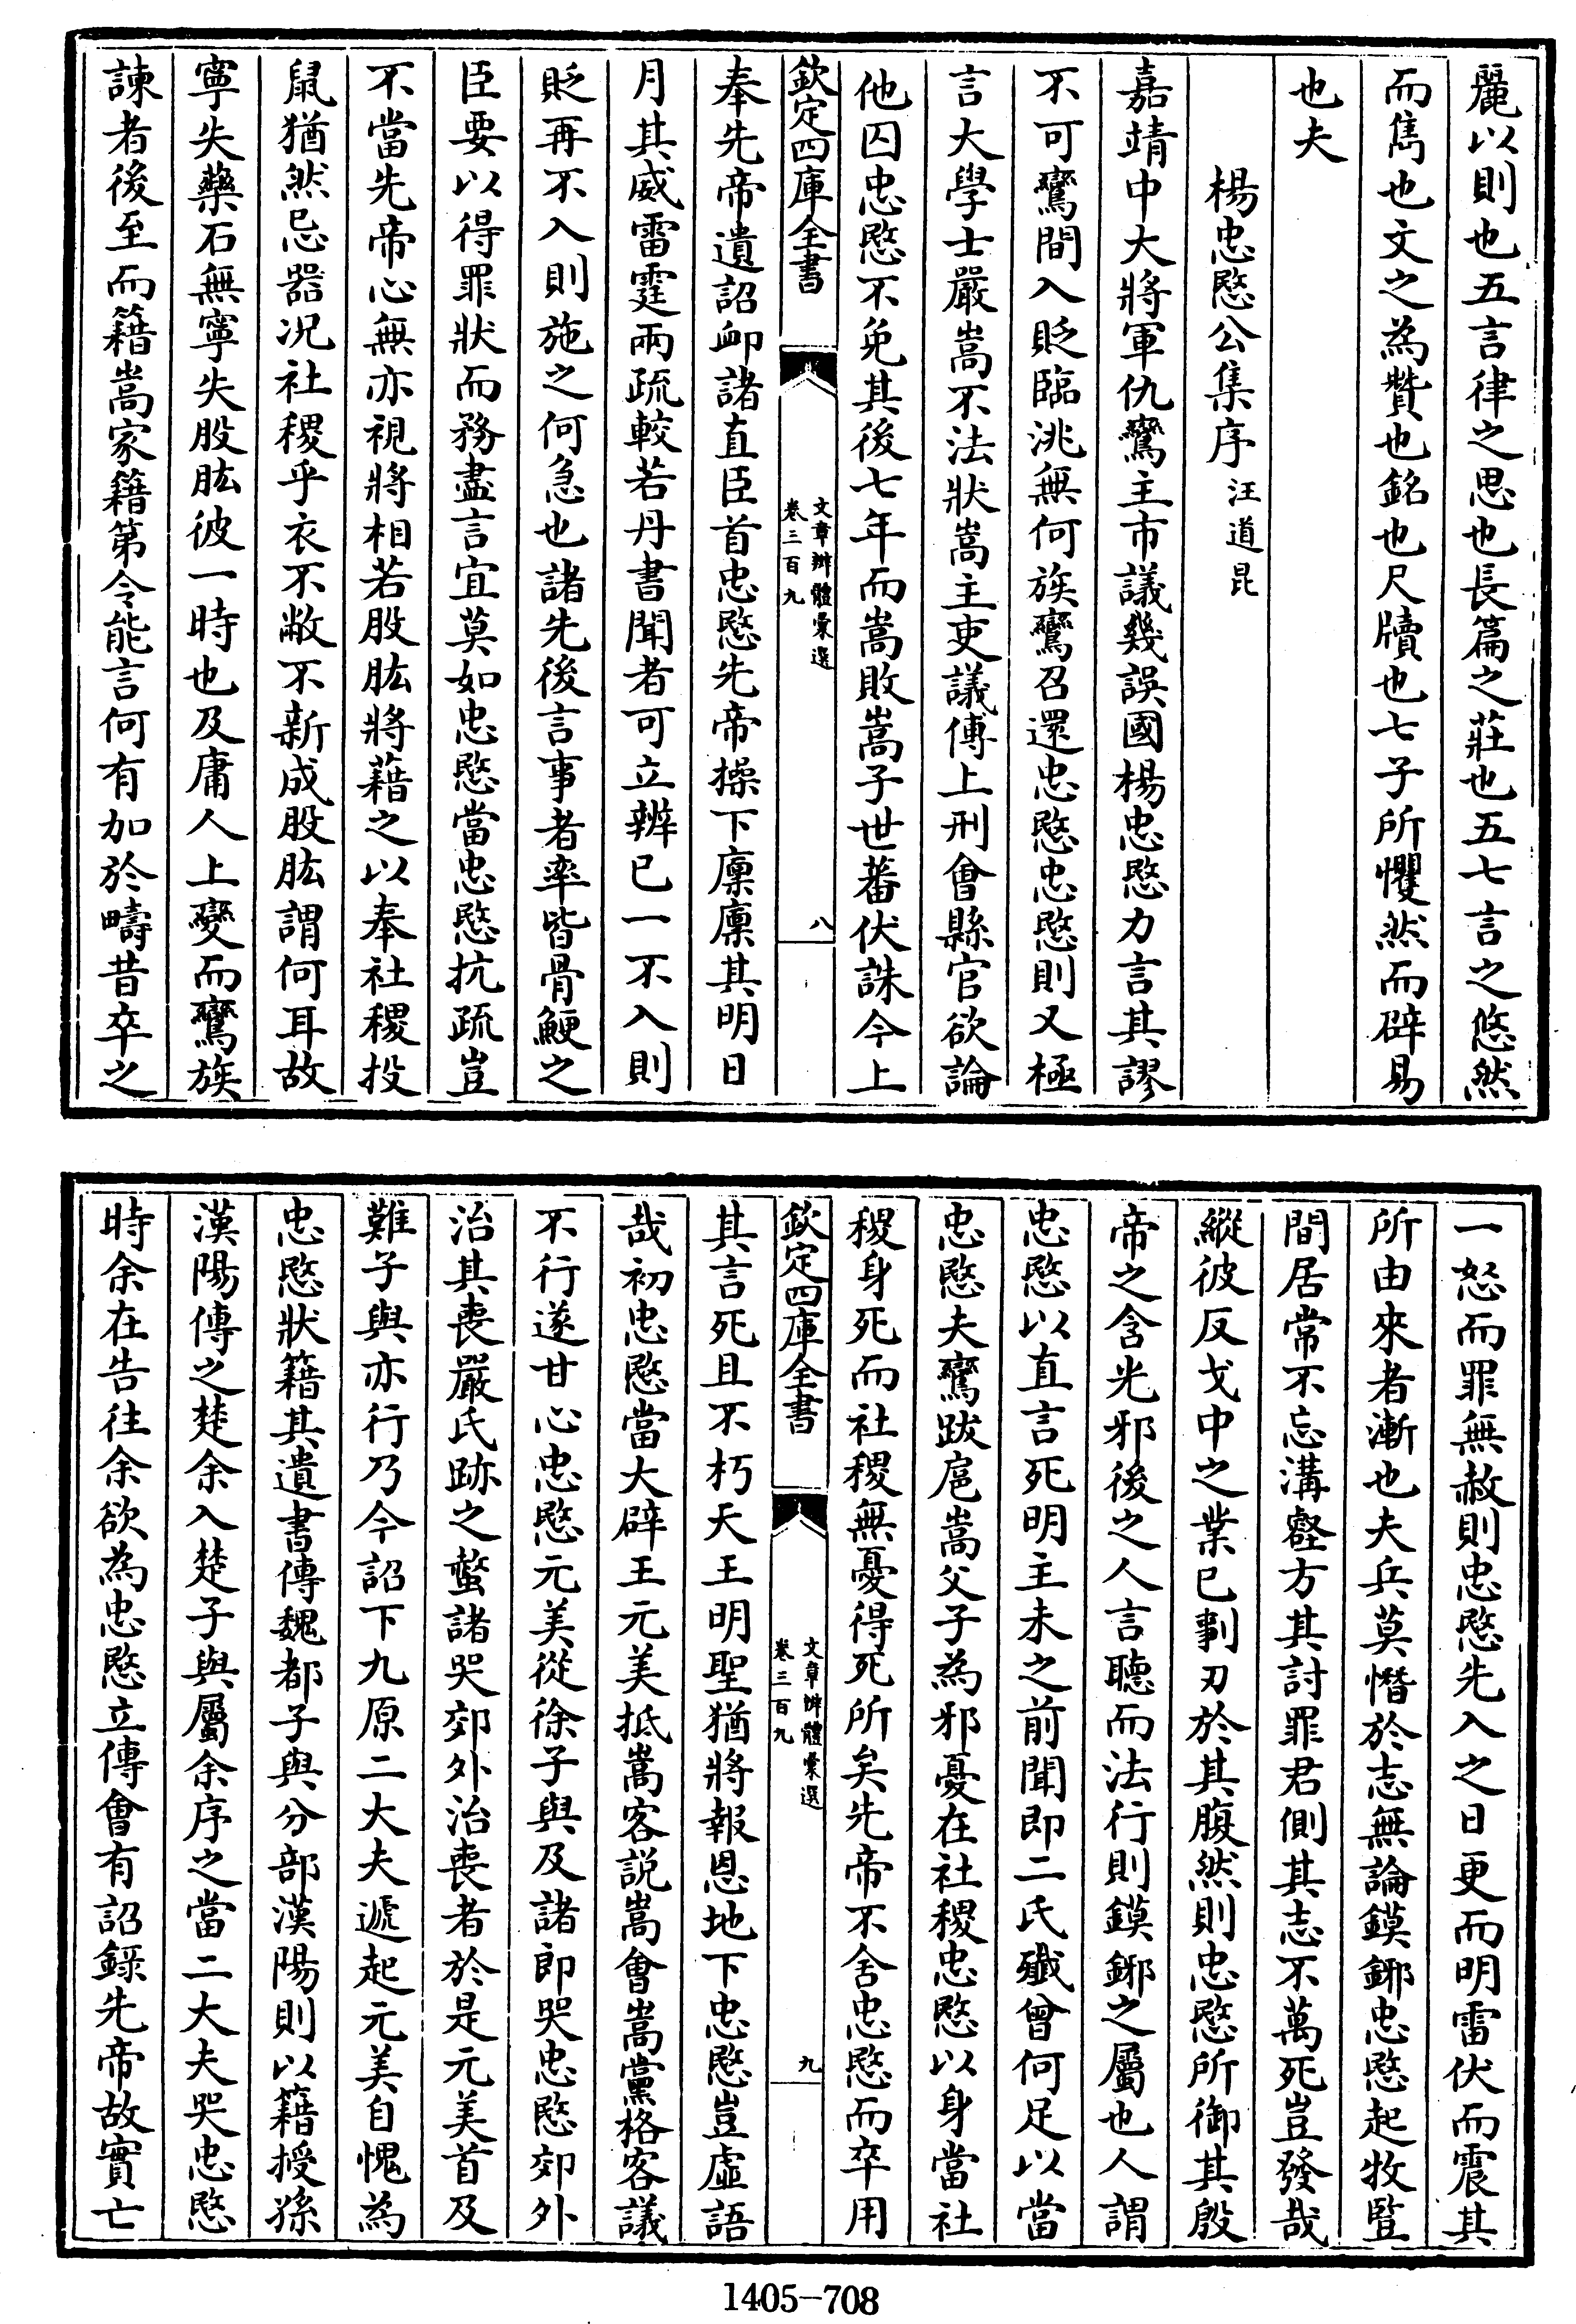 麗以則也五言律之思也長篇之莊也五七言之悠然
而雋也文之為贊也銘也尺牘也七子所懼然而辟易
也夫
楊忠愍公集序 汪道昆
嘉靖中大將軍仇鸞主市議幾誤國楊忠愍力言其謬
不可鸞間入貶臨洮無何族鸞召還忠愍忠愍則又極
言大學士嚴嵩不法狀嵩主吏議傅上刑會縣官欲論
他囚忠愍不免其後七年而嵩敗嵩子世蕃伏誅今上
欽定四庫全書
文章辨體彙選
卷三百九
八
奉先帝遺詔卹諸直臣首忠愍先帝操下廩廩其明日
月其威雷霆兩疏較若丹書聞者可立辨已一不入則
貶再不入則施之何急也諸先後言事者率皆骨鯁之
臣要以得罪狀而務盡言宜莫如忠愍當忠愍抗疏豈
不當先帝心無亦視將相若股肱將藉之以奉社稷投
鼠猶然忌器況社稷乎衣不敝不新成股肱謂何耳故
寧失藥石無寧失股肱彼一時也及庸人上變而鸞族
諫者後至而籍嵩家籍第令能言何有加於疇昔卒之
一怒而罪無赦則忠愍先入之日更而明雷伏而震其
所由來者漸也夫兵莫憯於志無論鏌鋣忠愍起牧豎
間居常不忘溝壑方其討罪君側其志不萬死豈發哉
縱彼反戈中之業已剚刃於其腹然則忠愍所御其殷
帝之含光邪後之人言聽而法行則鏌鋣之屬也人謂
忠愍以直言死明主未之前聞即二氏殲曾何足以當
忠愍夫鸞跋扈嵩父子為邪憂在社稷忠愍以身當社
稷身死而社稷無憂得死所矣先帝不舍忠愍而卒用
欽定四庫全書
文章辨體彙選
卷三百九
九
其言死且不朽天王明聖猶將報恩地下忠愍豈虛語
哉初忠愍當大辟王元美抵嵩客說嵩會嵩黨格客議
不行遂甘心忠愍元美從徐子與及諸郎哭忠愍郊外
治其喪嚴氏跡之螫諸哭郊外治喪者於是元美首及
難子與亦行乃今詔下九原二大夫遞起元美自愧為
忠愍狀籍其遺書傳魏都子與分部漢陽則以籍授孫
漢陽傳之楚余入楚子與屬余序之當二大夫哭忠愍
時余在告往余欲為忠愍立傳會有詔錄先帝故實亡
1405-708